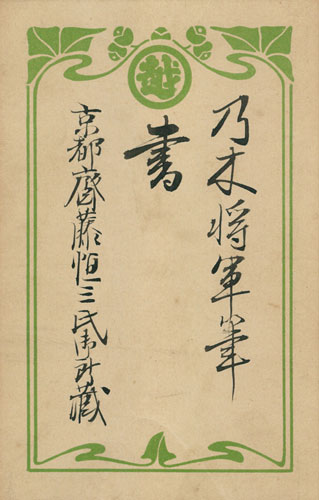 越
乃木将軍筆
書
京都齋藤恒三氏御所藏